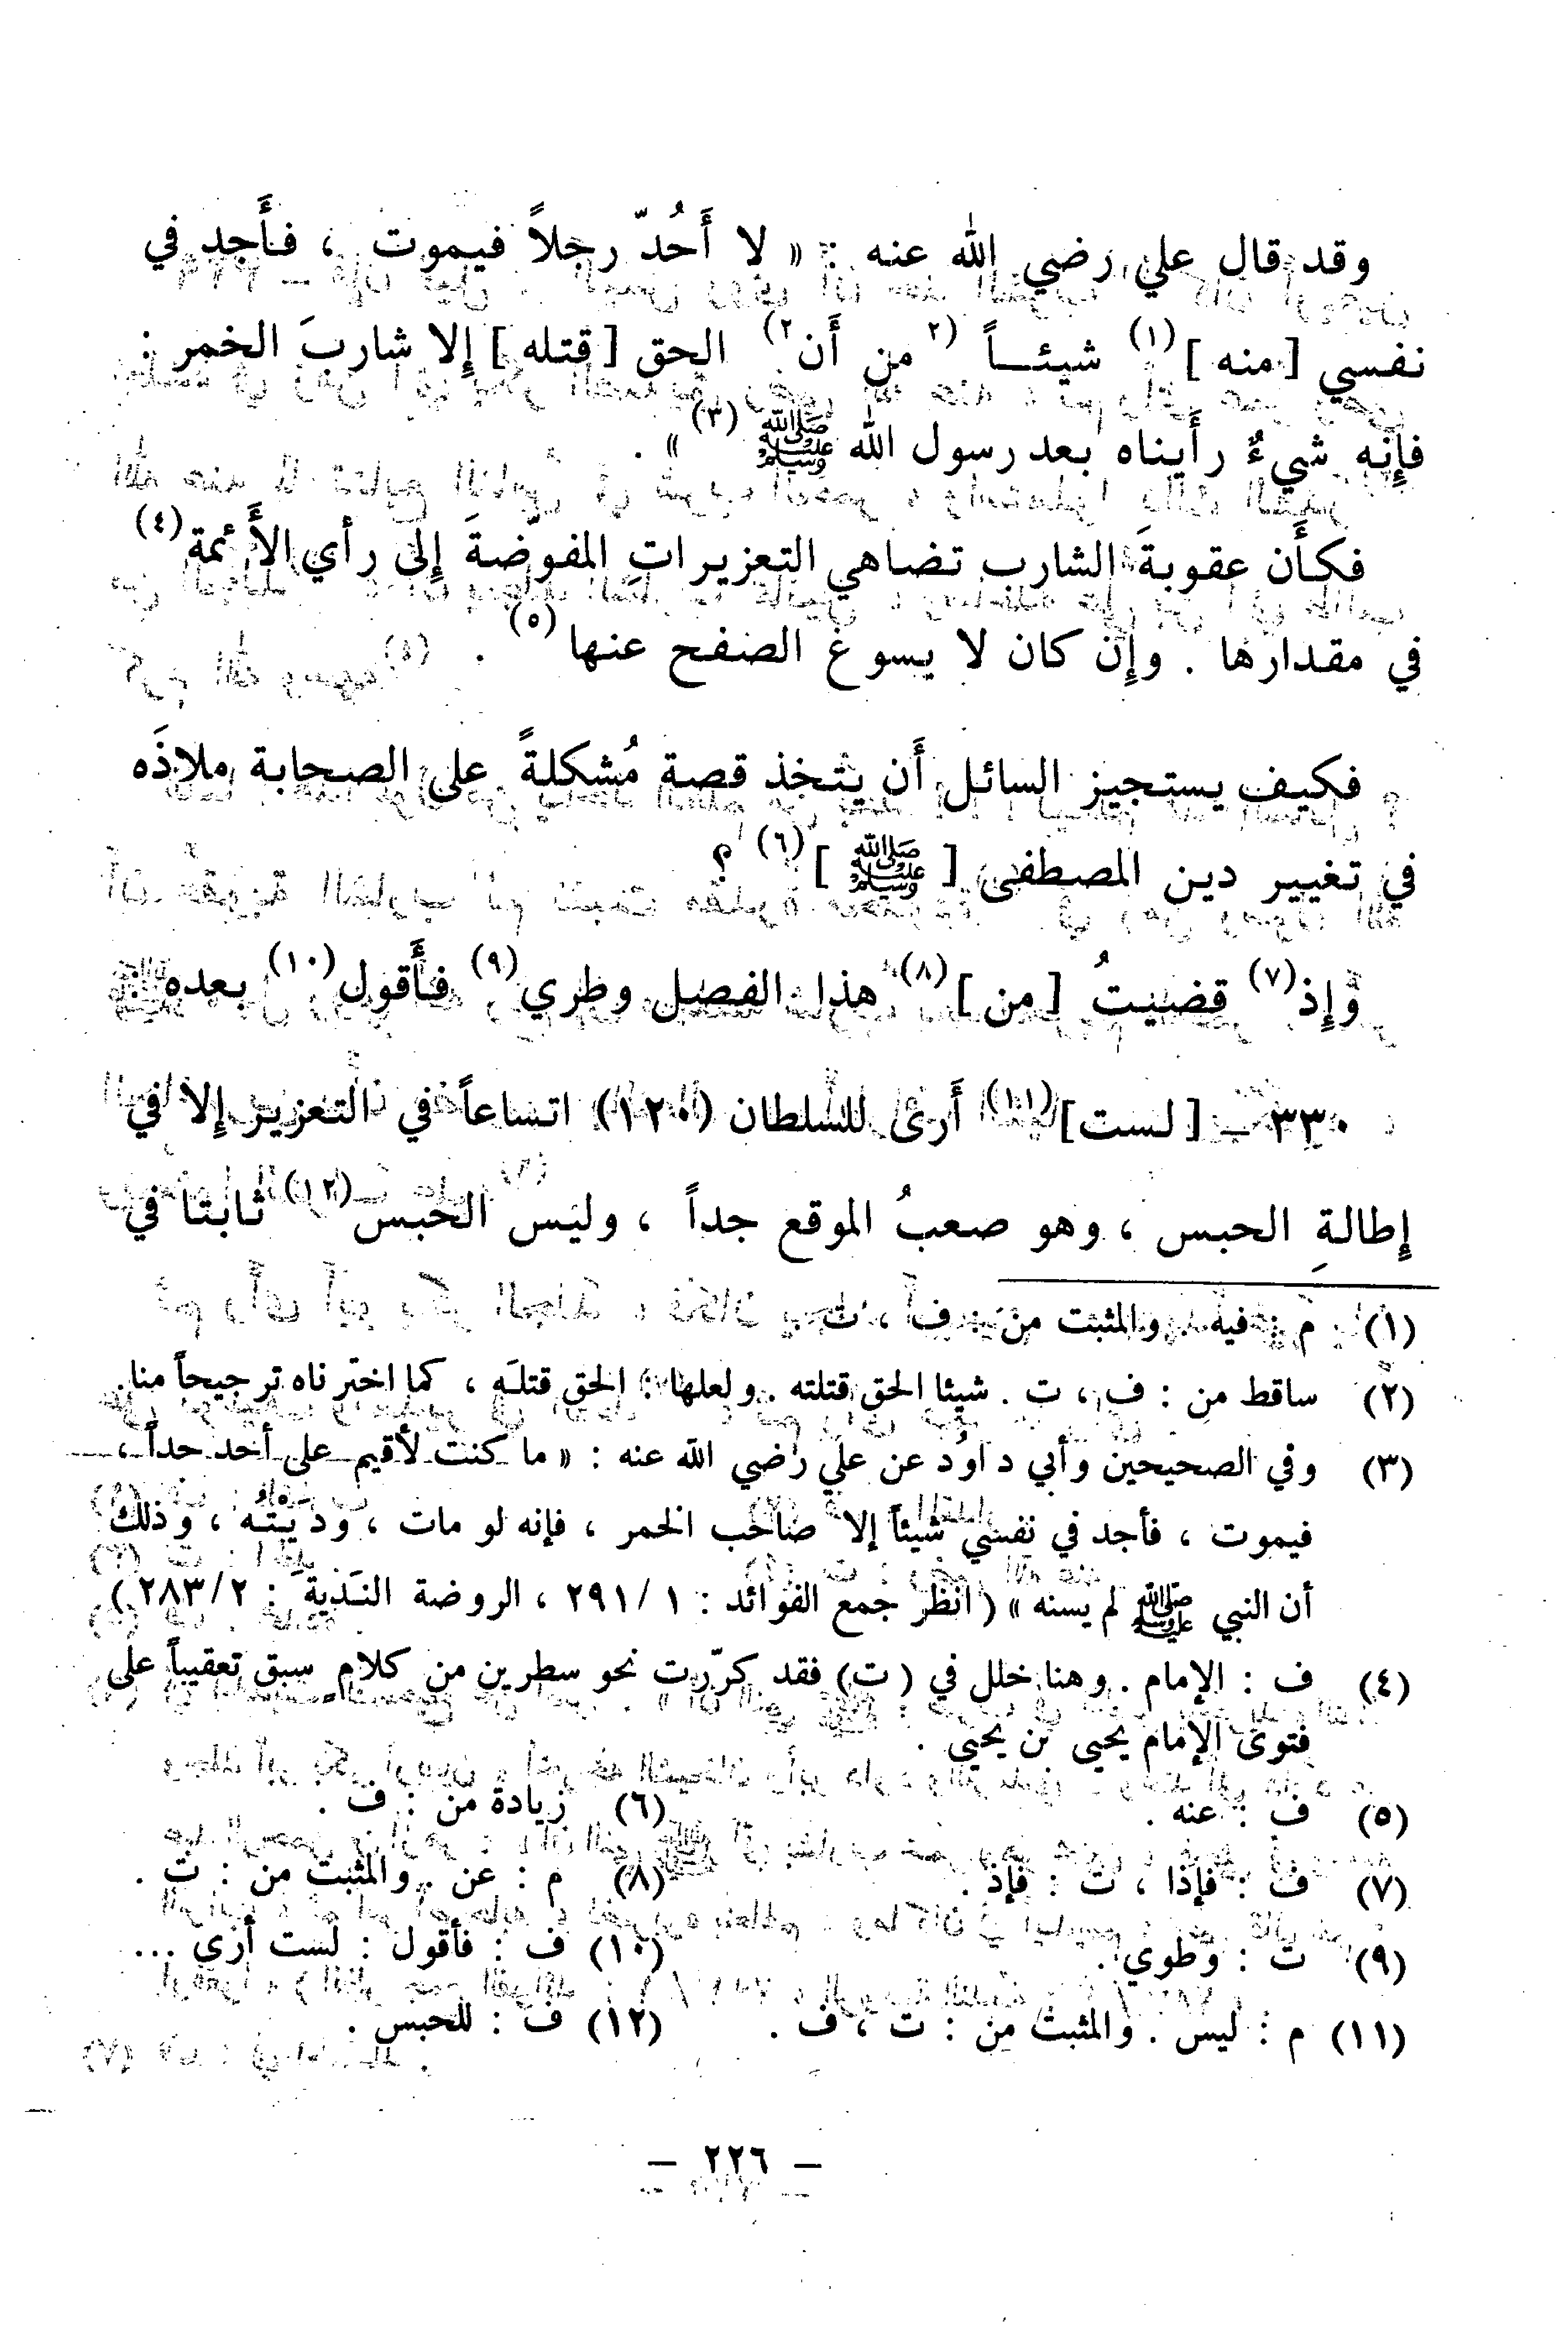 وقد قال علي رضي الله عنه : « لا أَحُدّ رجلاً فيموت ، فأَجد في
نفسي [ منه ] (١) شيئــاً (٢ من أَن ٢) الحق [ قتله ] إِلا شاربَ الخمر :
فإِنه شيءٌ رأَيناه بعد رسول الله ﷺ (٣) » .
فكأَن عقوبةَ الشارب تضاهي التعزيراتِ المفوّضةَ إِلى رأي الأَئمة (٤)
في مقدارها . وإِن كان لا يسوغ الصفح عنها (٥) .
فكيف يستجيز السائل أَن يتخذ قصة مُشكلةً على الصحابة ملاذَه
في تغيير دين المصطفى [ ﷺ ] (٦) ؟
وإِذ (٧) قضيتُ [ من ] (٨) هذا الفصل وطري (٩) فأَقول (١٠) بعده :
٣٣٠ ــ [ لست ] (١١) أَرى للسلطان (١٢٠) اتساعاً في التعزير إِلا في
إِطالةِ الحبس ، وهو صعبُ الموقع جداً ، وليس الحبس (١٢) ثابتا في
(١) م : فيه . والمثبت من : ف ، ت .
(٢) ساقط من : ف ، ت . شيئا الحق قتلته . ولعلها : الحق قتلَه ، كما اخترناه ترجيحاً منا .
(٣) وفي الصحيحين وأبي داود عن علي رضي الله عنه : « ما كنت لأقيم على أحد حداً ،
فيموت ، فأجد في نفسي شيئاً إلا صاحب الخمر ، فإنه لو مات ، وديتُه ، وذلك
أن النبي ﷺ لم يسنه » ( انظر جمع الفوائد : ١ / ٢٩١ ، الروضة النَدية : ٢ / ٢٨٣ )
(٤) ف : الإمام . وهنا خلل في ( ت ) فقد كرّرت نحو سطرين من كلام سبق تعقيباً على
فتوى الإمام يحيى بن يحيى .
(٥) ف : عنه . (٦) زيادة من : ف .
(٧) ف : فإذا ، ت : فإذ . (٨) م : عن . والمثبت من : ت .
(٩) ت : وطوي . (١٠) ف : فأقول : لست أرى ...
(١١) م : ليس . والمثبت من : ت ، ف . (١٢) ف : للحبس .
— ٢٢٦ —